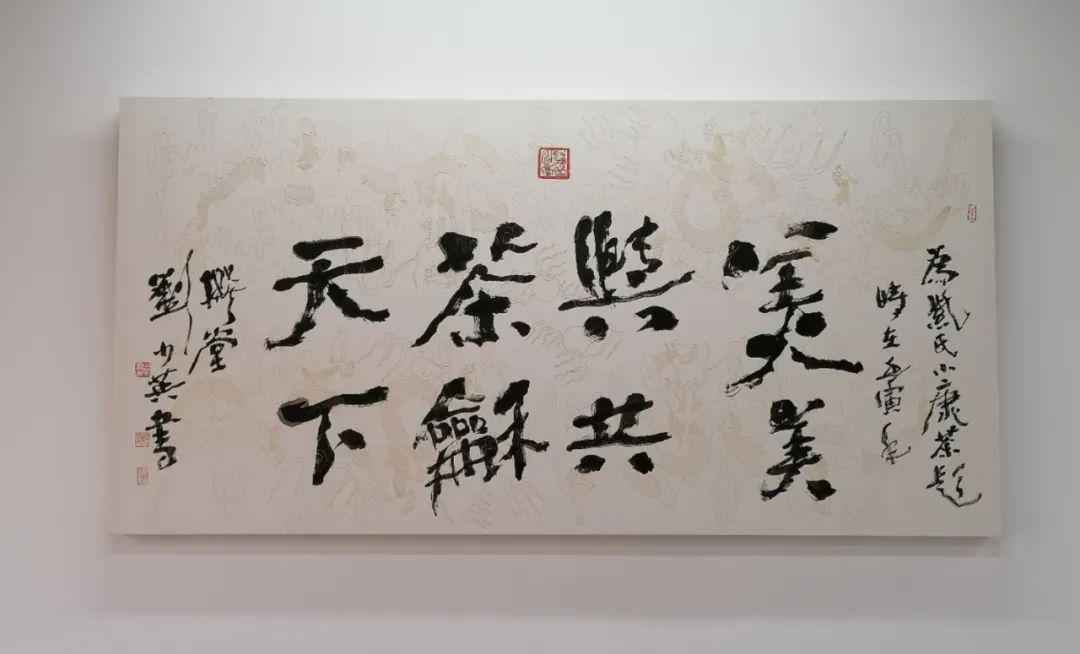 為戴氏小康茶題
時在壬寅
美美
與共
茶龢
天下
堂
劉少英書